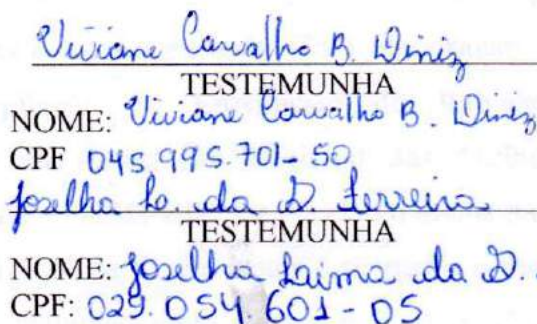 Viviane Carvalho B. Diniz
TESTEMUNHA
NOME: Viviane Carvalho B. Diniz
CPF 045.995.701-50
Joselha L. da S. Ferreira
TESTEMUNHA
NOME: Joselha Laima da S.
CPF: 029.054.601-05